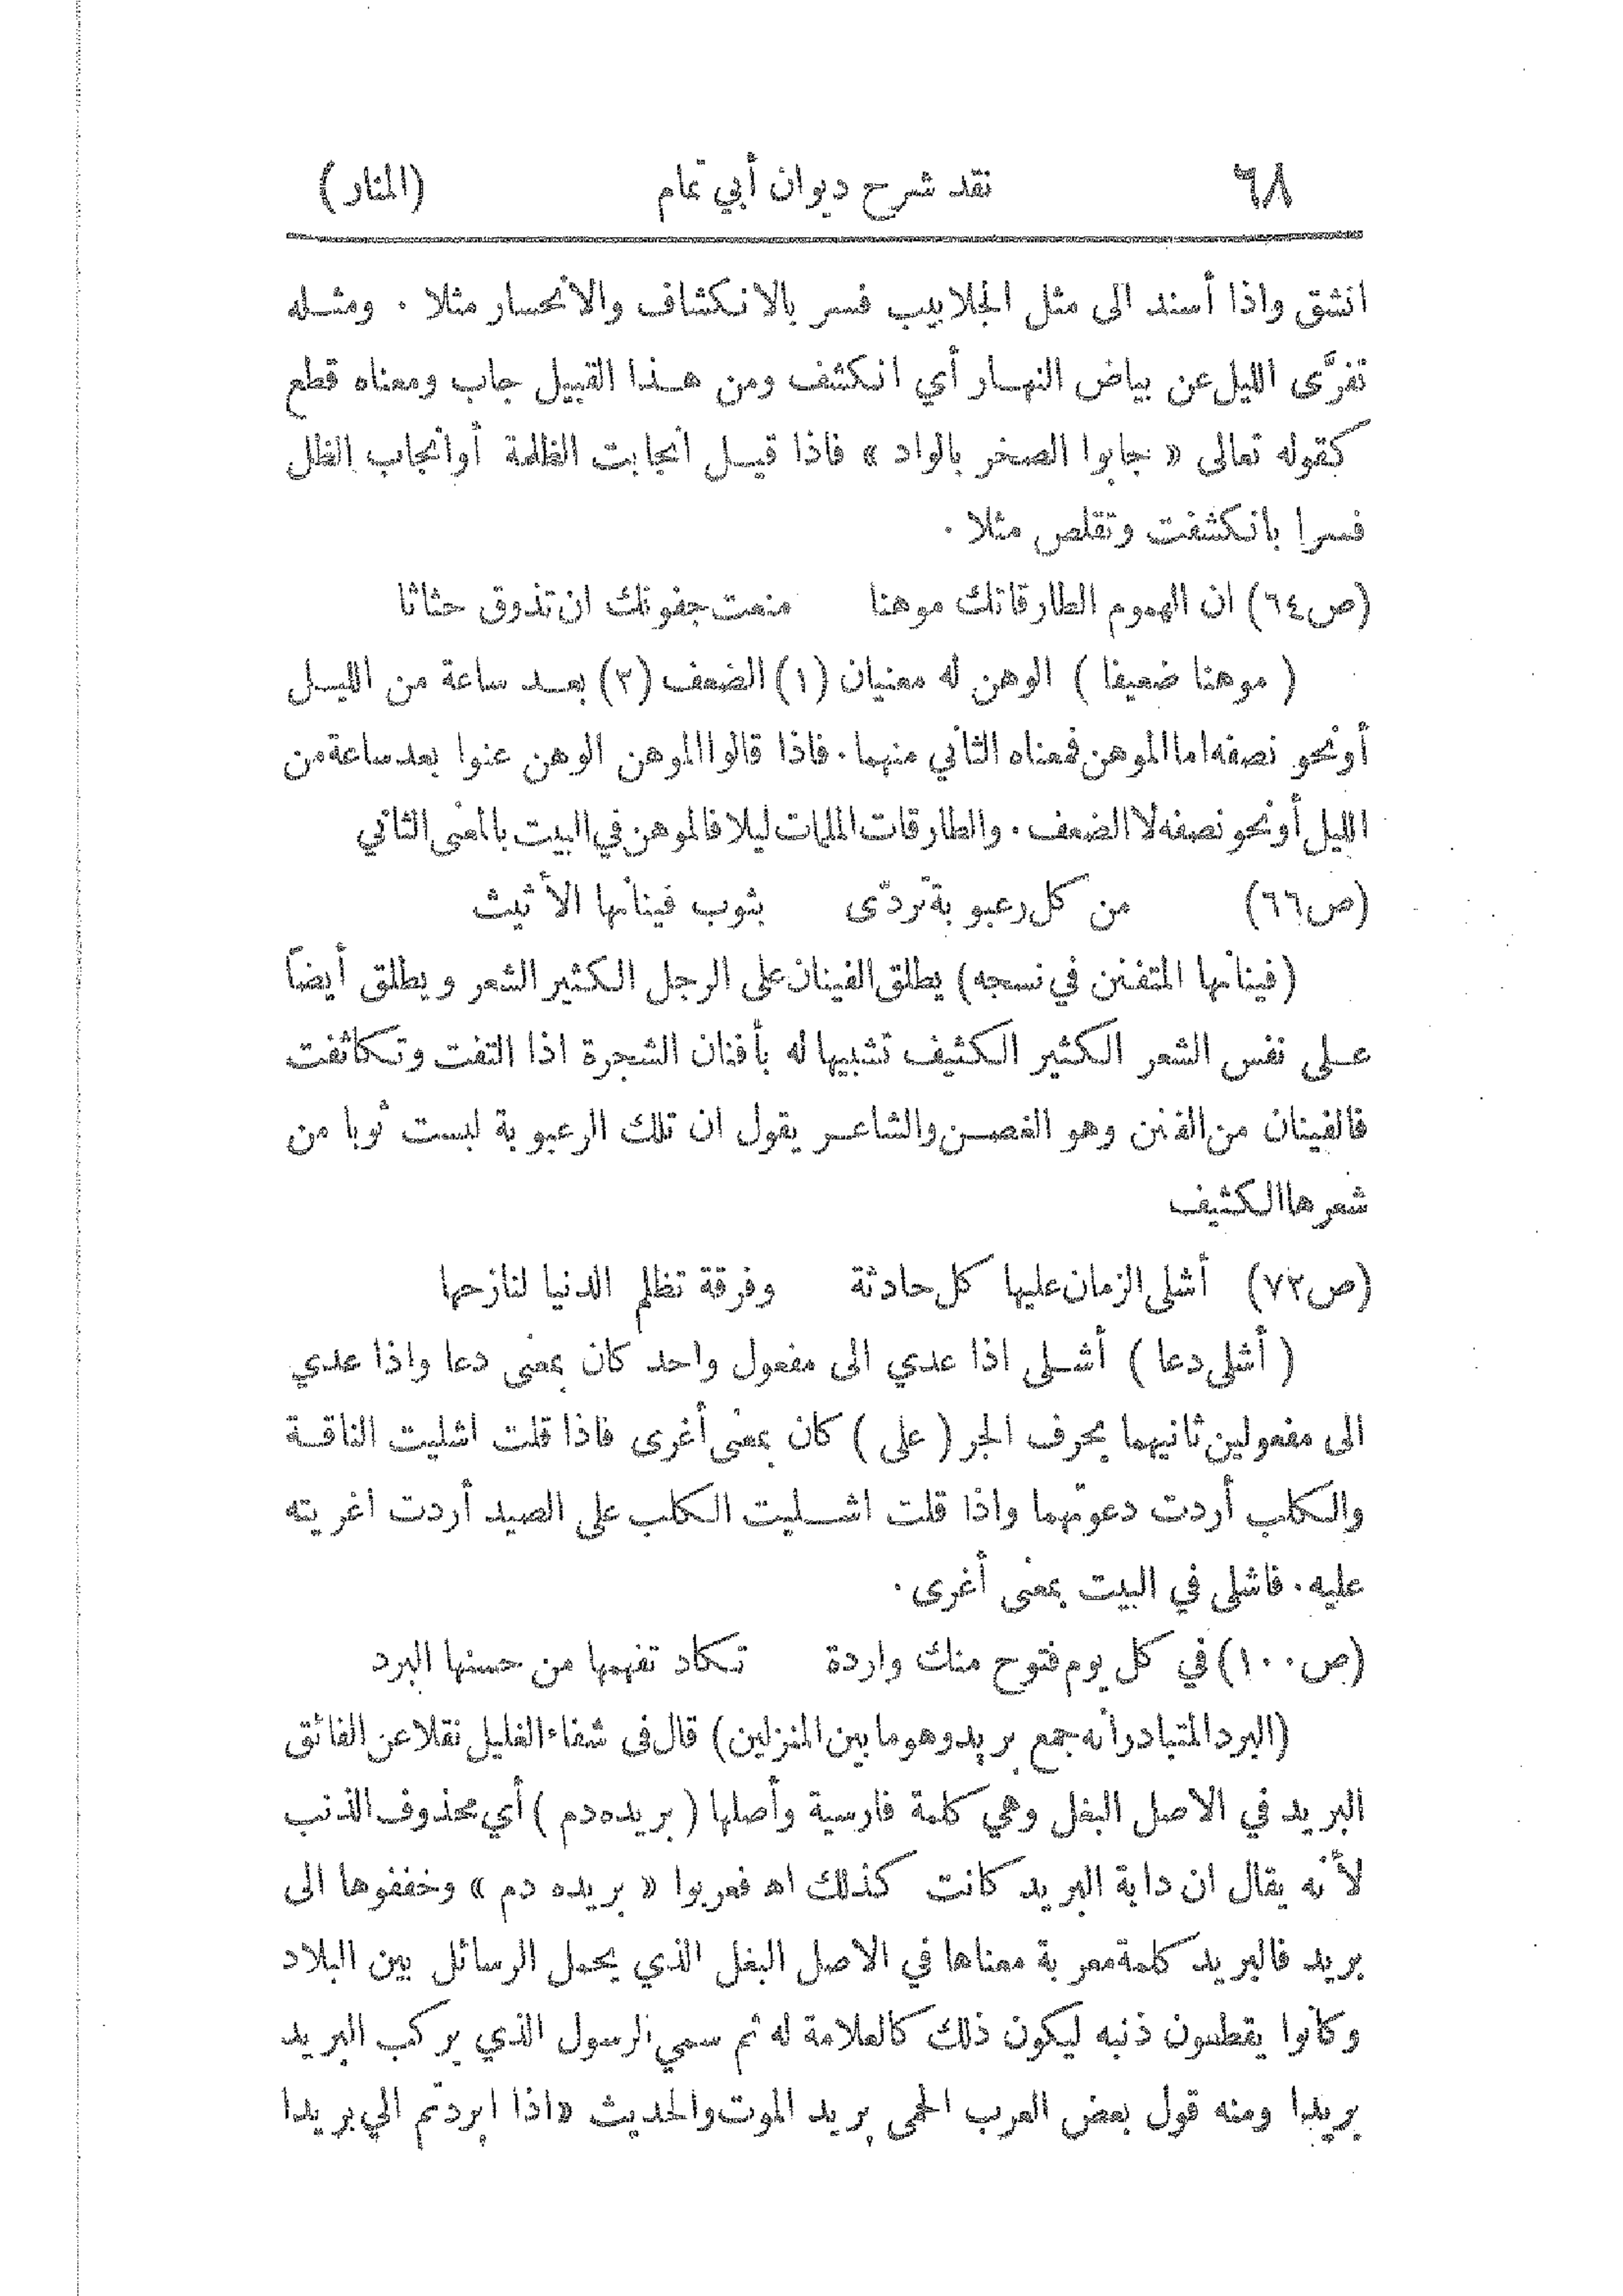 ٦٨ نقد شرح ديوان أبي تمام (المنار)
انشق واذا أسند الى مثل الجلابيب فسر بالانكشاف والانحسار مثلا . ومثله
تفرَّى الليل عن بياض النهار أي انكشف ومن هذا القبيل جاب ومعناه قطع
كقوله تعالى « جابوا الصخر بالواد » فاذا قيل انجابت الظلمة أوانجاب الظل
فسرا بانكشفت وتقلص مثلا .
(ص٦٤) ان الهموم الطارقاتك موهنا منعت جفونك ان تذوق حثاثا
( موهنا ضعيفا ) الوهن له معنيان (١) الضعف (٢) بعد ساعة من الليل
أونحو نصفه اما الموهن فمعناه الثاني منهما . فاذا قالوا الموهن الوهن عنوا بعد ساعة من
الليل أونحو نصفه لا الضعف . والطارقات الملمات ليلا فالموهن في البيت بالمعنى الثاني
(ص٦٦) من كل رعبوبة تردّى بثوب فينانها الأثيث
(فينانها المتفنن في نسجه) يطلق الفينان على الرجل الكثير الشعر ويطلق أيضاً
على نفس الشعر الكثير الكثيف تشبيها له بأفنان الشجرة اذا التفت وتكاثفت
فالفينان من الفنن وهو الغصن والشاعر يقول ان تلك الرعبوبة لبست ثوبا من
شعرها الكثيف
(ص٧٢) أشلى الزمان عليها كل حادثة وفرقة تظلم الدنيا لنازحها
( أشلى دعا ) أشلى اذا عدي الى مفعول واحد كان بمعنى دعا واذا عدي
الى مفعولين ثانيهما بحرف الجر ( على ) كان بمعنى أغرى فاذا قلت اشليت الناقة
والكلب أردت دعوتهما واذا قلت اشليت الكلب على الصيد أردت اغريته
عليه . فاشلى في البيت بمعنى أغرى .
(ص١٠٠) في كل يوم فتوح منك واردة تكاد تفهمها من حسنها البرد
(البرد المتبادر أنه جمع بريد وهو ما بين المنزلين) قال في شفاء الغليل نقلا عن الفائق
البريد في الاصل البغل وهي كلمة فارسية وأصلها ( بريده دم ) أي محذوف الذنب
لأنه يقال ان دابة البريد كانت كذلك اه فعربوا « بريده دم » وخففوها الى
بريد فالبريد كلمة معربة معناها في الاصل البغل الذي يحمل الرسائل بين البلاد
وكانوا يقطعون ذنبه ليكون ذلك كالعلامة له ثم سمي الرسول الذي يركب البريد
بريدا ومنه قول بعض العرب الحمى بريد الموت والحديث «اذا ابردتم الي بريدا